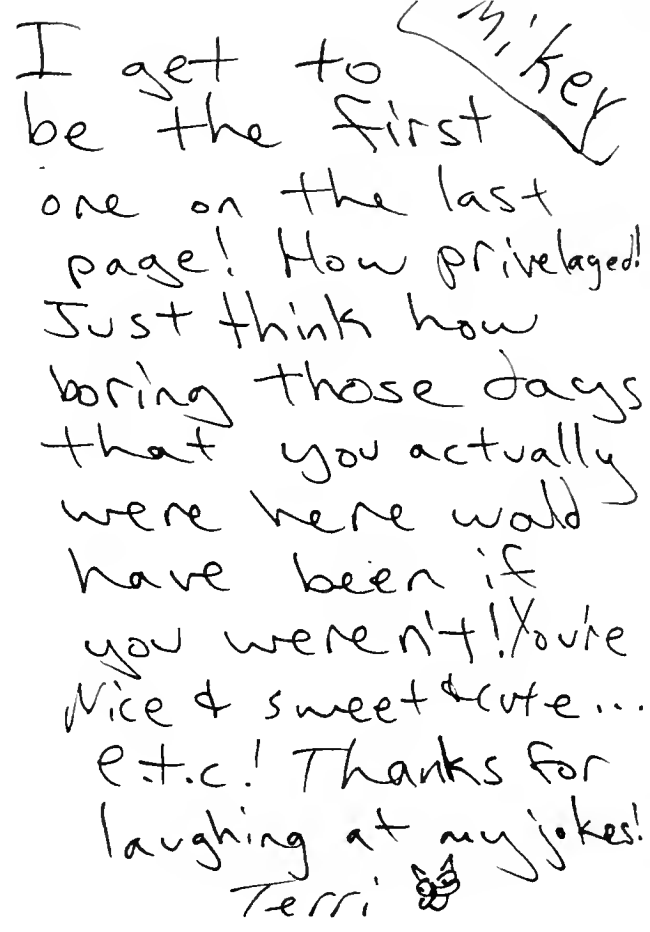 Mikey
I get to
be the first
one on the last
page! How privelaged!
Just think how
boring those days
that you actually
were here would
have been if
you weren't! You're
Nice & sweet & cute...
e.t.c! Thanks for
laughing at my jokes!
Terri